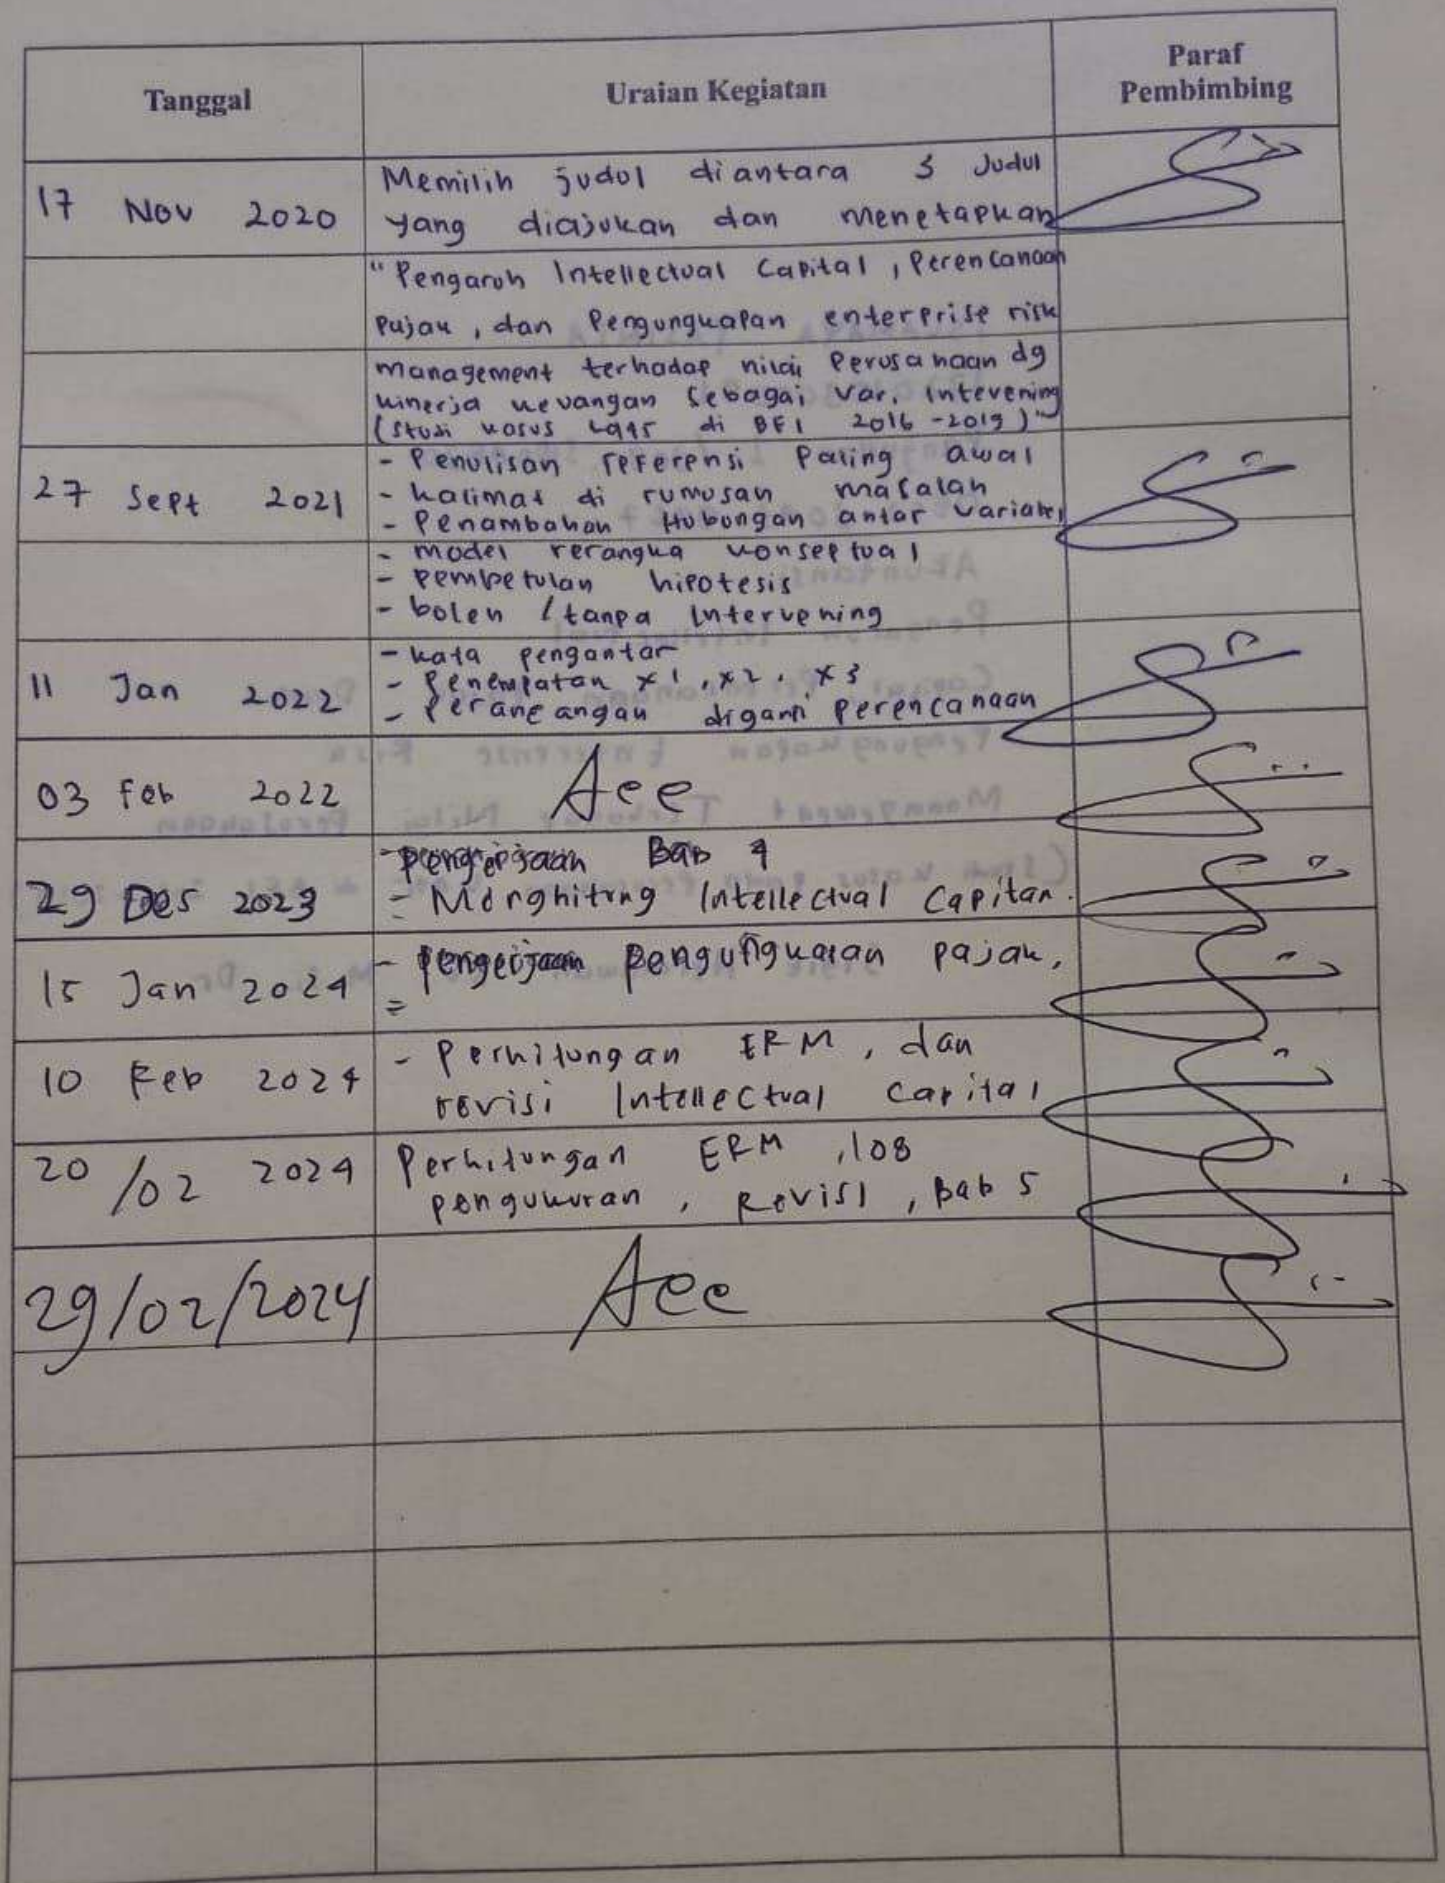 Tanggal
Uraian Kegiatan
Paraf
Pembimbing
17 Nov 2020
Memilih judul diantara 3 Judul
yang diajukan dan menetapkan
"Pengaruh Intellectual Capital, Perencanaan
Pajak, dan Pengungkapan enterprise risk
management terhadap nilai Perusahaan dg
kinerja keuangan sebagai var. intevening
(Studi kasus di BEI 2016-2019)"
27 Sept 2021
- Penulisan referensi Paling awal
- kalimat di rumusan masalah
- Penambahan Hubungan antar variabel
- model rerangka konseptual
- pembetulan hipotesis
- boleh / tanpa Intervening
11 Jan 2022
- kata pengantar
- Penempatan x1, x2, x3
- Perancangan diganti perencanaan
03 Feb 2022
Acc
29 Des 2023
- pengerjaan Bab 4
- Menghitung Intellectual Capital.
15 Jan 2024
- pengerjaan pengungkapan pajak,
=
10 Feb 2024
- Perhitungan ERM, dan
revisi Intellectual Capital
20/02 2024
Perhitungan ERM, 108
pengukuran, Revisi, Bab 5
29/02/2024
Acc